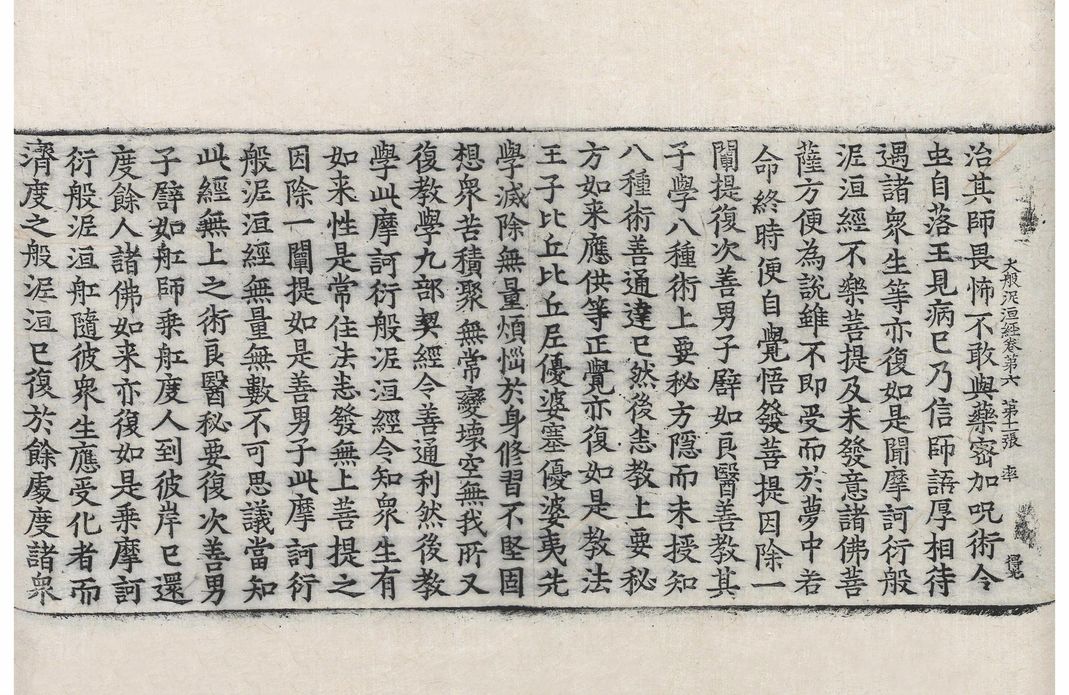 大般泥洹經卷第六　第十一張　率
治其師畏怖不敢與藥密加呪術令
虫自落王見病已乃信師語厚相待
遇諸衆生等亦復如是聞摩訶衍般
泥洹經不樂菩提及未發意諸佛菩
薩方便為說雖不即受而於夢中若
命終時便自覺悟發菩提因除一
闡提復次善男子譬如良醫善教其
子學八種術上要秘方隱而未授知
八種術善通達已然後悉教上要秘
方如来應供等正覺亦復如是教法
王子比丘比丘尼優婆塞優婆夷先
學滅除無量煩惱於身修習不堅固
想衆苦積聚無常變壞空無我所又
復教學九部契經令善通利然後教
學此摩訶衍般泥洹經令知衆生有
如来性是常住法悉發無上菩提之
因除一闡提如是善男子此摩訶衍
般泥洹經無量無數不可思議當知
此經無上之術良醫秘要復次善男
子譬如舩師乘舩度人到彼岸已還
度餘人諸佛如来亦復如是乘摩訶
衍般泥洹舩隨彼衆生應受化者而
濟度之般泥洹已復於餘處度諸衆